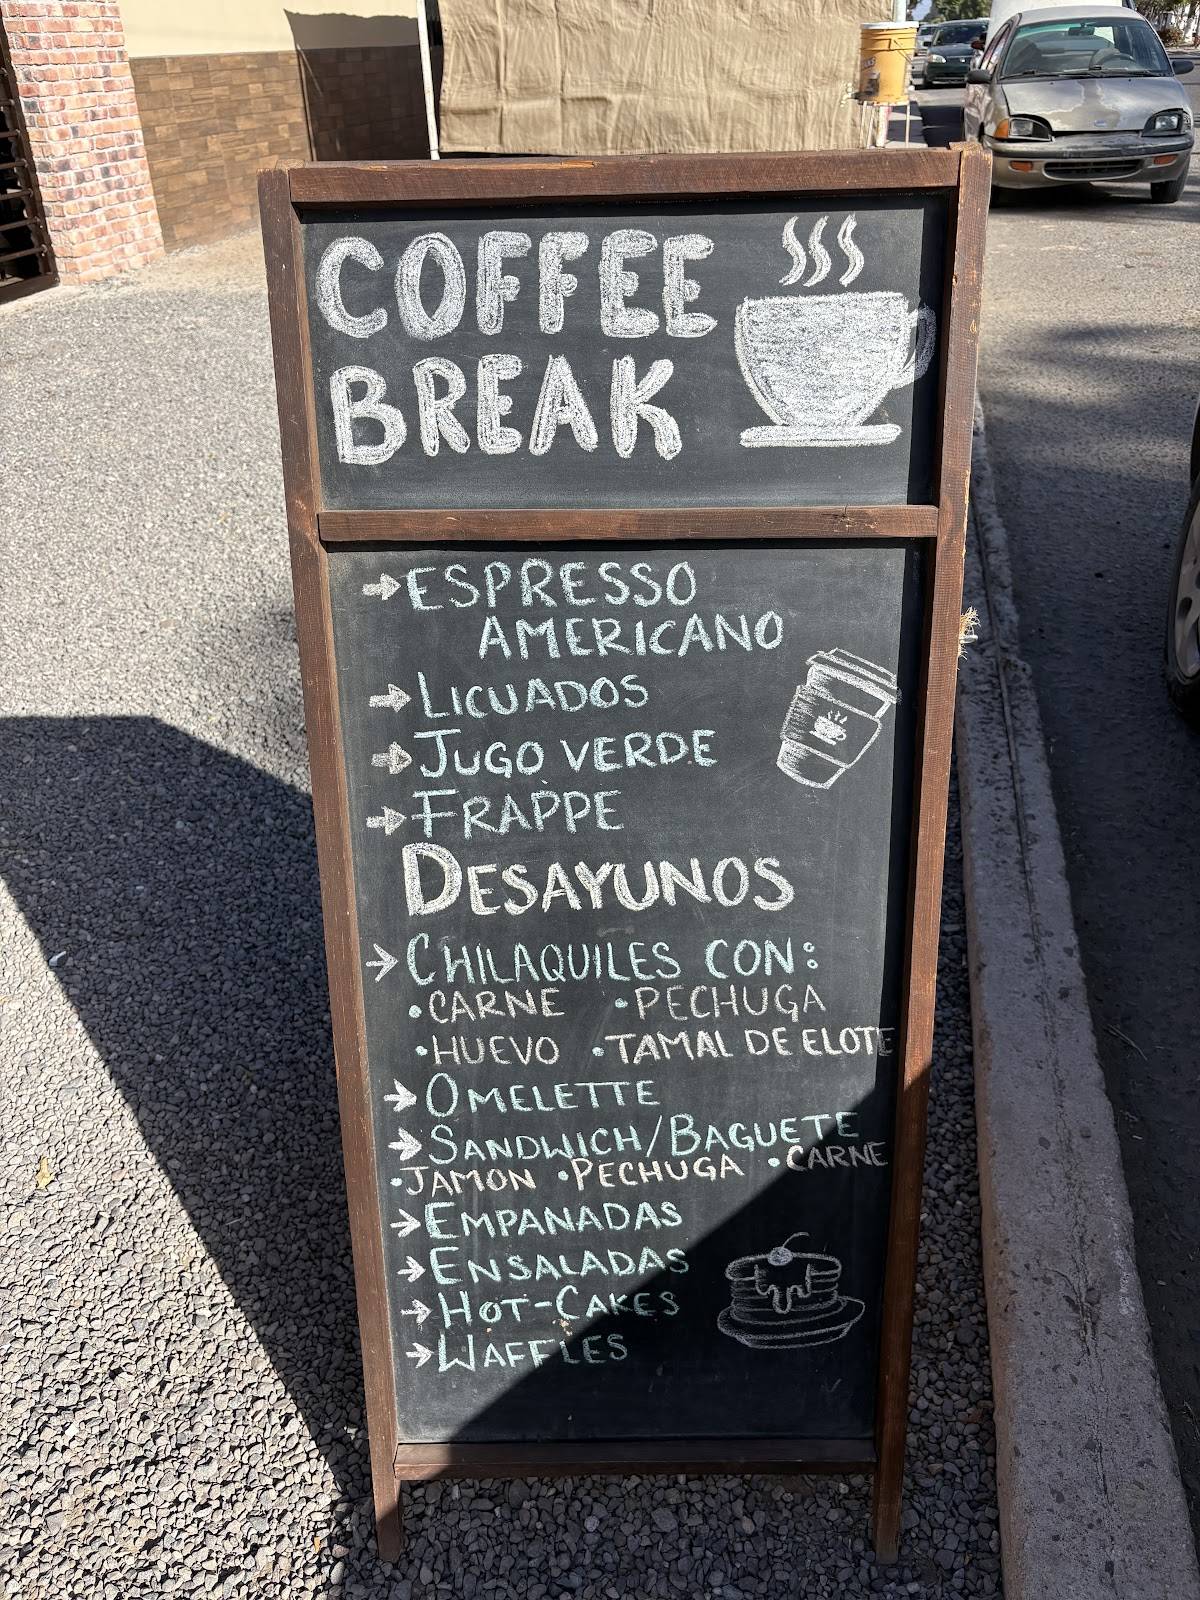 COFFEE
BREAK
ESPRESSO
AMERICANO
LICUADOS
JUGO VERDE
FRAPPE
DESAYUNOS
CHILAQUILES CON:
•CARNE •PECHUGA
•HUEVO •TAMAL DE ELOTE
OMELETTE
SANDWICH/BAGUETE
•JAMON •PECHUGA •CARNE
EMPANADAS
ENSALADAS
HOT-CAKES
WAFFLES